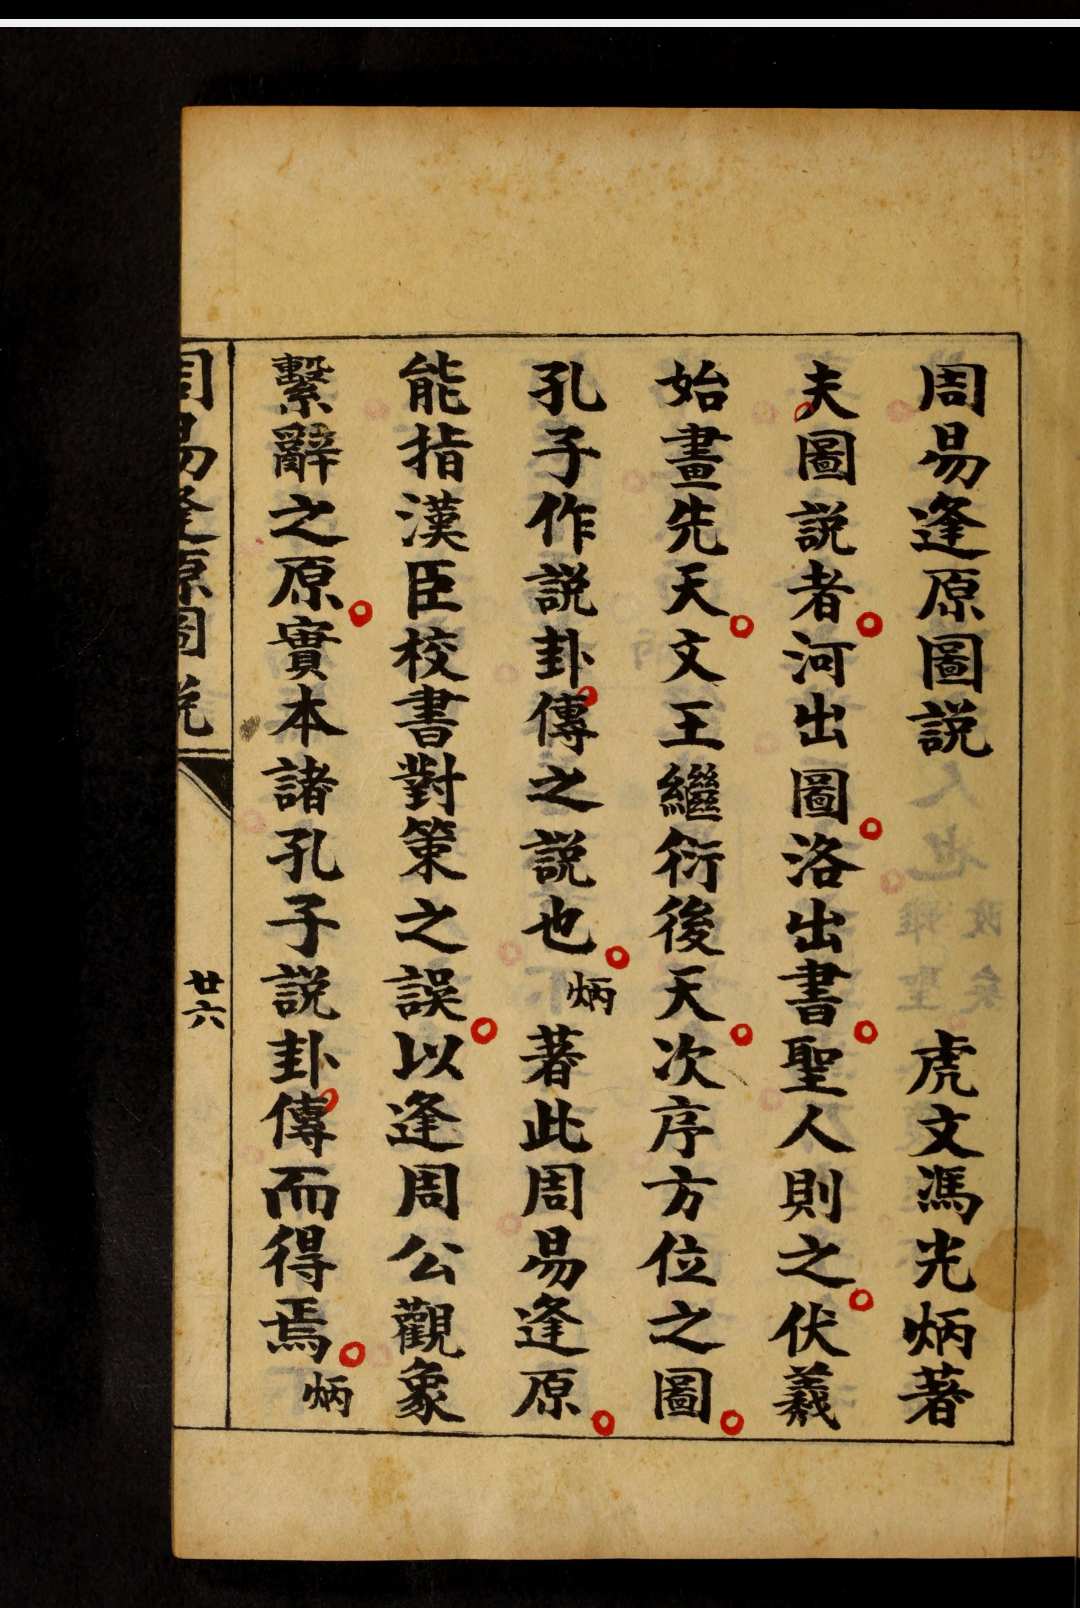 周易逢原圖説 虎文馮光炳著
夫圖説者河出圖洛出書聖人則之伏羲
始畫先天文王繼衍後天次序方位之圖
孔子作説卦傳之説也炳著此周易逢原
能指漢臣校書對策之誤以逢周公觀象
繫辭之原實本諸孔子説卦傳而得焉炳
周易逢原圖説
廿六